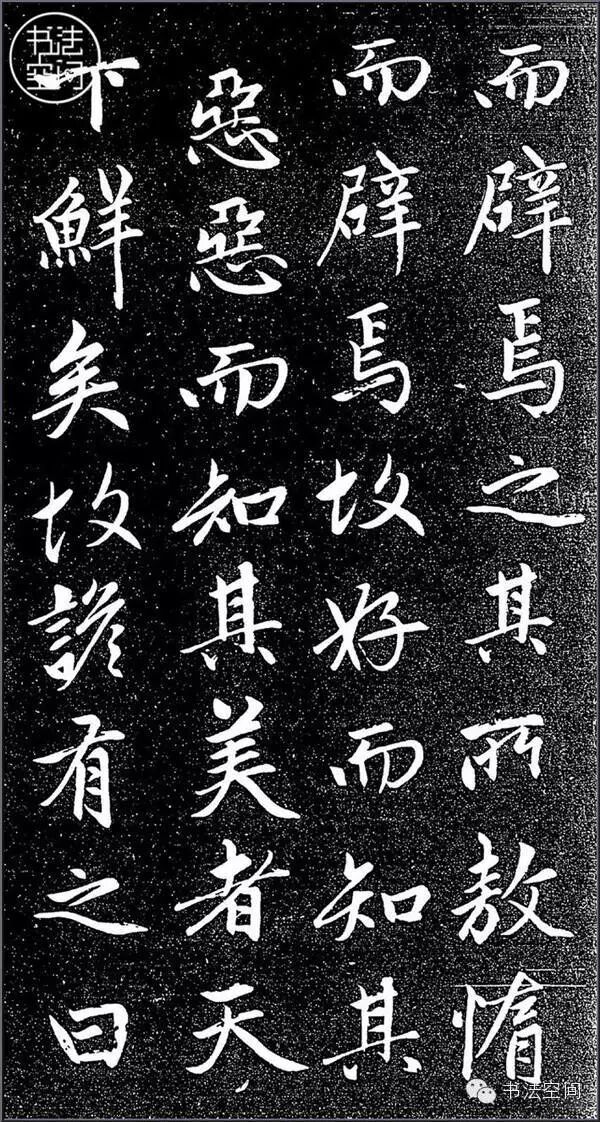 而辟焉之其所敖惰
而辟焉故好而知其
惡惡而知其美者天
下鮮矣故諺有之曰
书法
空间
书法空间